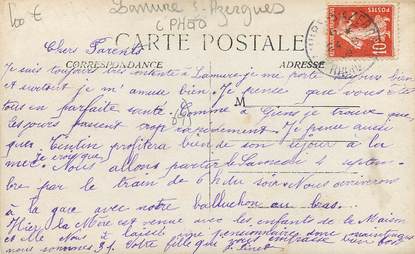 100 €
Lamure s. Azergues
CPHOTO
Chers Parents
CARTE POSTALE
CORRESPONDANCE
ADRESSE
M
Je suis toujours très contente à Lamure je me porte toujours bien
et surtout je m'amuse bien. Je pense que vous êtes
tous en parfaite santé. Comme à Giens je trouve que
les jours passent trop rapidement. Je pense aussi
que Tintin profitera bien de son séjour à la
mer. Nous allons partir le Samedi 1 septem-
je crois que
bre par le train de 6h du soir. Nous arriverons
à la gare avec notre balluchon au bras...
Hier la Mère est venue avec les enfants de la Maison
et elle nous a laissé une pensionnaire donc maintenant
nous sommes 31. Votre fille que vous embrasse bien fort
RÉPUBLIQUE FRANÇAISE
10
POSTES